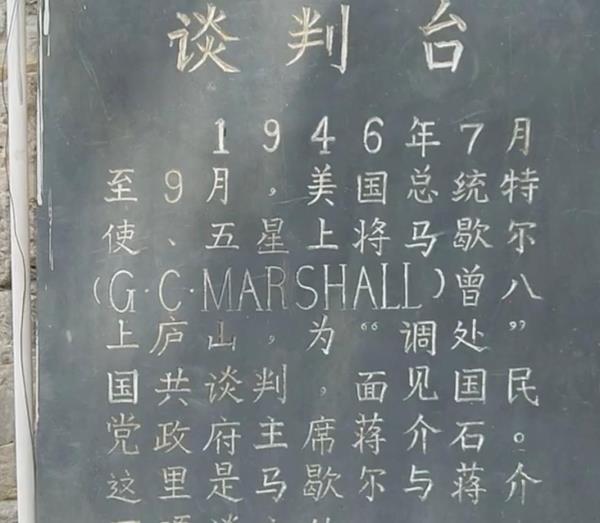 谈判台
1946年7月
至9月，美国总统特
使、五星上将马歇尔
(G·C·MARSHALL)曾八
上庐山，为“调处”
国共谈判，面见国民
党政府主席蒋介石。
这里是马歇尔与蒋介